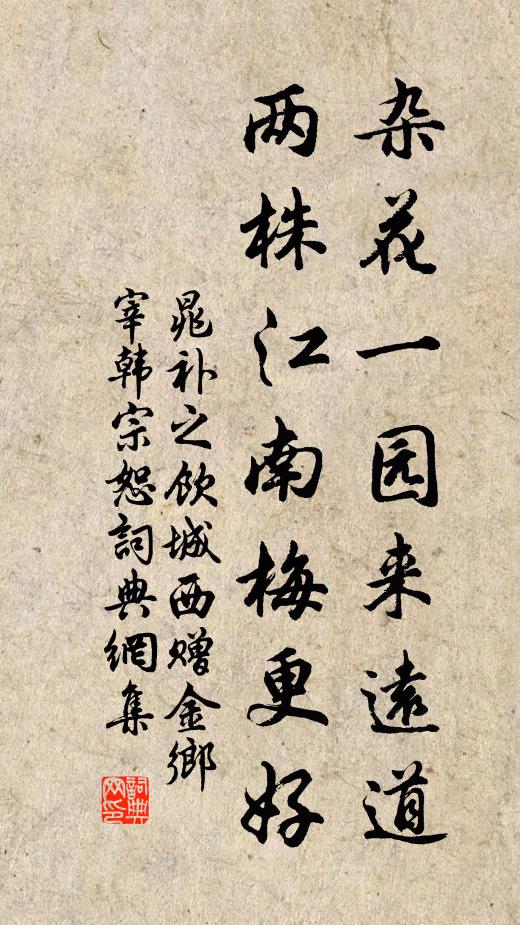 杂花一园来遠道
两株江南梅更好
晁补之饮城西赠金鄉
宰韩宗恕詞典網集
詞典
网印